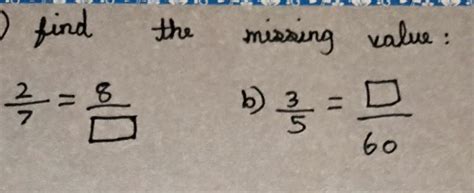 ) find the missing value :
2/7 = 8/□ b) 3/5 = □/60